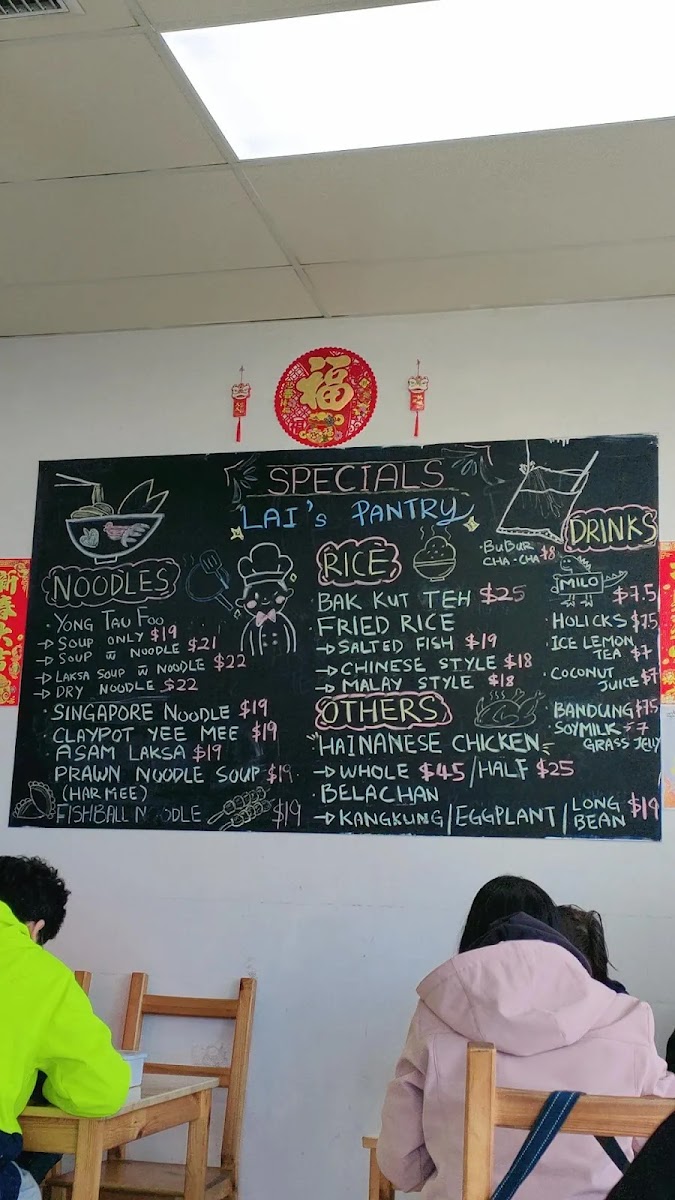 福
SPECIALS
LAI's PANTRY
NOODLES
· YONG TAU FOO
→ SOUP ONLY $19
→ SOUP w̅ NOODLE $21
→ LAKSA SOUP w̅ NOODLE $22
→ DRY NOODLE $22
· SINGAPORE NOODLE $19
· CLAYPOT YEE MEE $19
ASAM LAKSA $19
PRAWN NOODLE SOUP $19
(HAR MEE)
· FISHBALL NOODLE $19
RICE
· BAK KUT TEH $25
· FRIED RICE
→ SALTED FISH $19
→ CHINESE STYLE $18
→ MALAY STYLE $18
OTHERS
HAINANESE CHICKEN
→ WHOLE $45 / HALF $25
· BELACHAN
→ KANGKUNG / EGGPLANT / LONG BEAN $19
· BUBUR
CHA · CHA $8
DRINKS
MILO $7.5
· HOLICKS $7.5
· ICE LEMON
TEA $7
· COCONUT
JUICE $7
· BANDUNG $7.5
· SOYMILK $7
GRASS JELLY